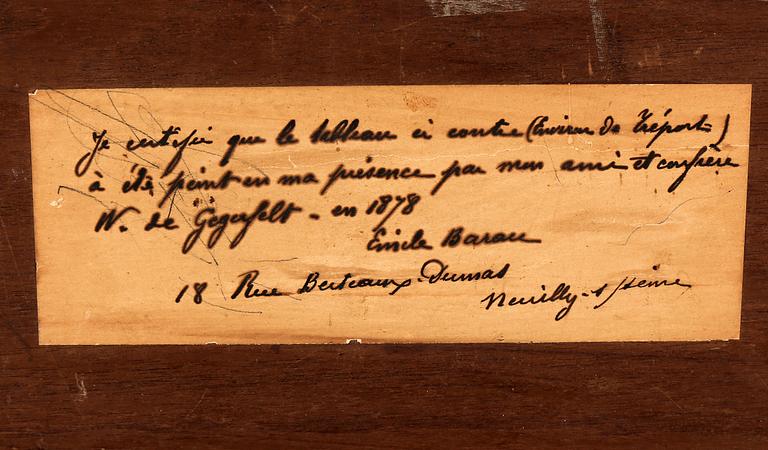 Je certifie que le tableau ci contre (Environ du Tréport)
à été peint en ma présence par mon ami et confrère
W. de Gegerfelt - en 1878
Emile Barau
18 Rue Berteaux-Dumas
Neuilly-s/seine